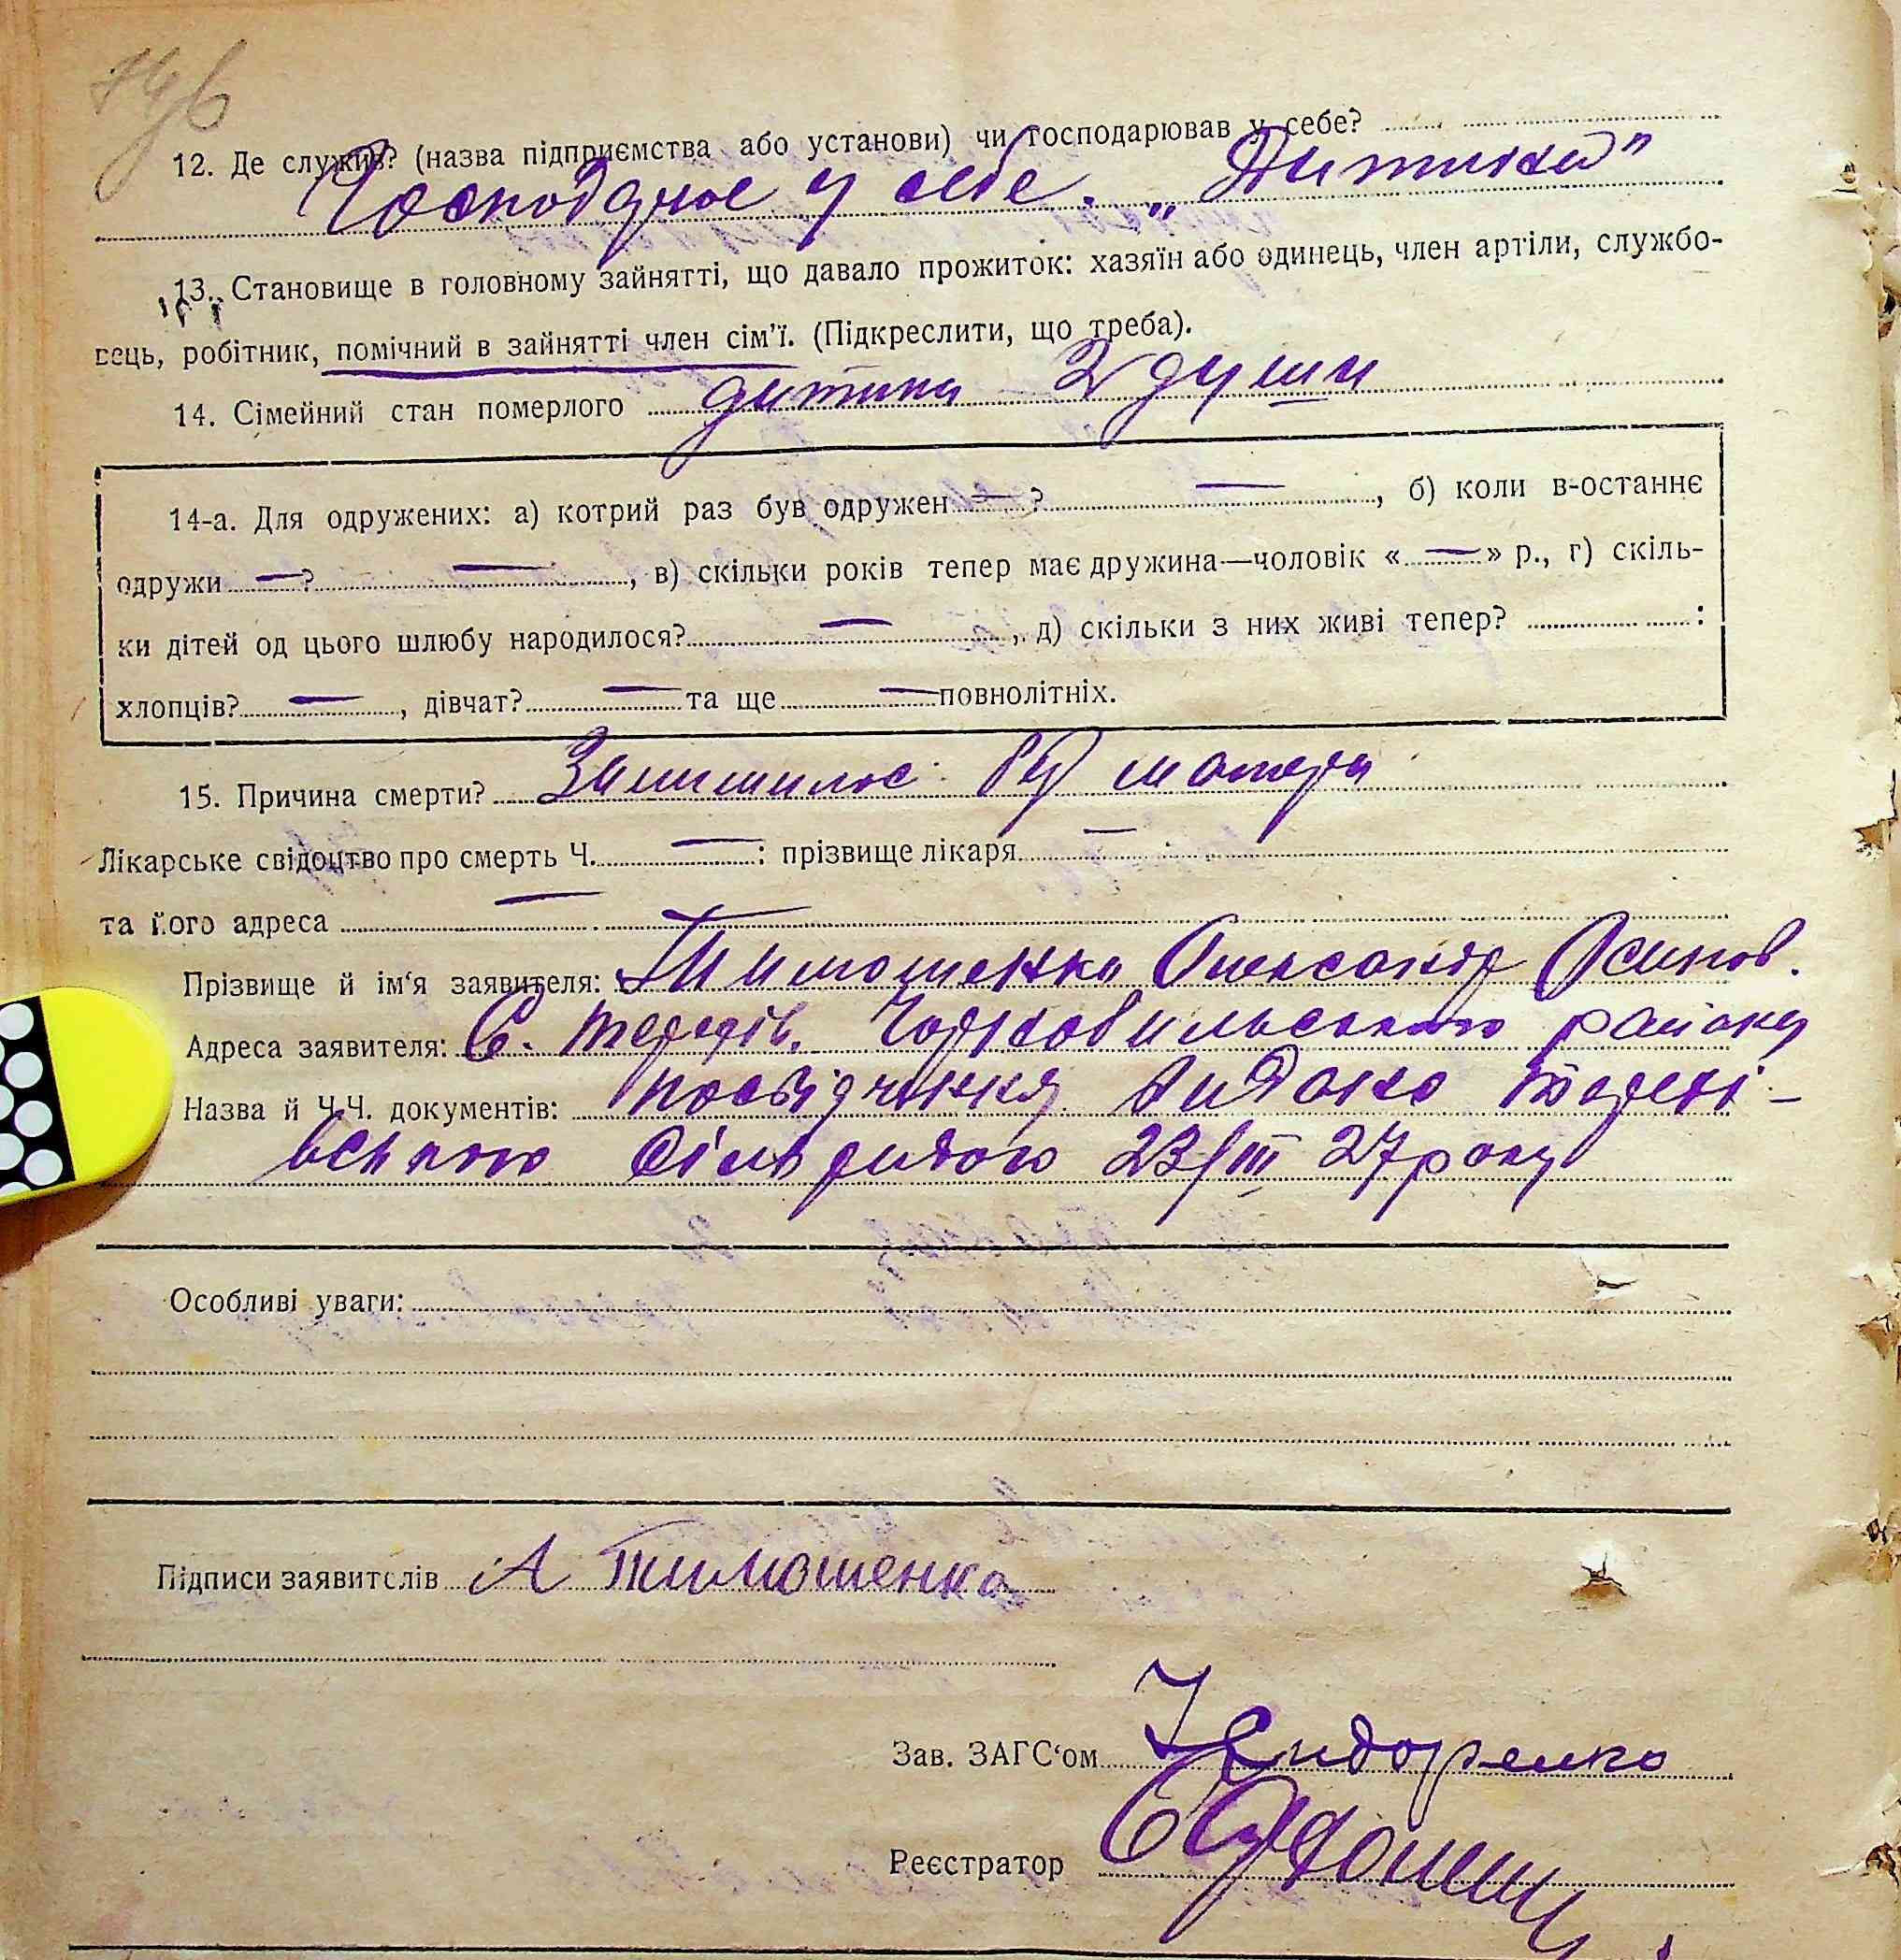 12. Де служив? (назва підприємства або установи) чи господарював у себе?
у себе. „Дитина"
13. Становище в головному зайнятті, що давало прожиток: хазяїн або одинець, член артіли, службо-
вець, робітник, помічний в зайнятті член сім'ї. (Підкреслити, що треба).
14. Сімейний стан померлого дитина 2 души
14-а. Для одружених: а) котрий раз був одружен — ? —, б) коли в-останнє
одружи — ? —, в) скільки років тепер має дружина—чоловік «—» р., г) скіль-
ки дітей од цього шлюбу народилося? —, д) скільки з них живі тепер? :
хлопців? —, дівчат? — та ще — повнолітніх.
15. Причина смерти? матери
Лікарське свідоцтво про смерть Ч. — : прізвище лікаря — :
та його адреса — —
Прізвище й ім'я заявителя: Тимошенко Олександр Осипов.
Адреса заявителя: С. району
Назва й Ч.Ч. документів: посвідчення видано
сільрадою 23/III 27 року
Особливі уваги:
Підписи заявителів А Тимошенко
Зав. ЗАГС'ом
Реєстратор